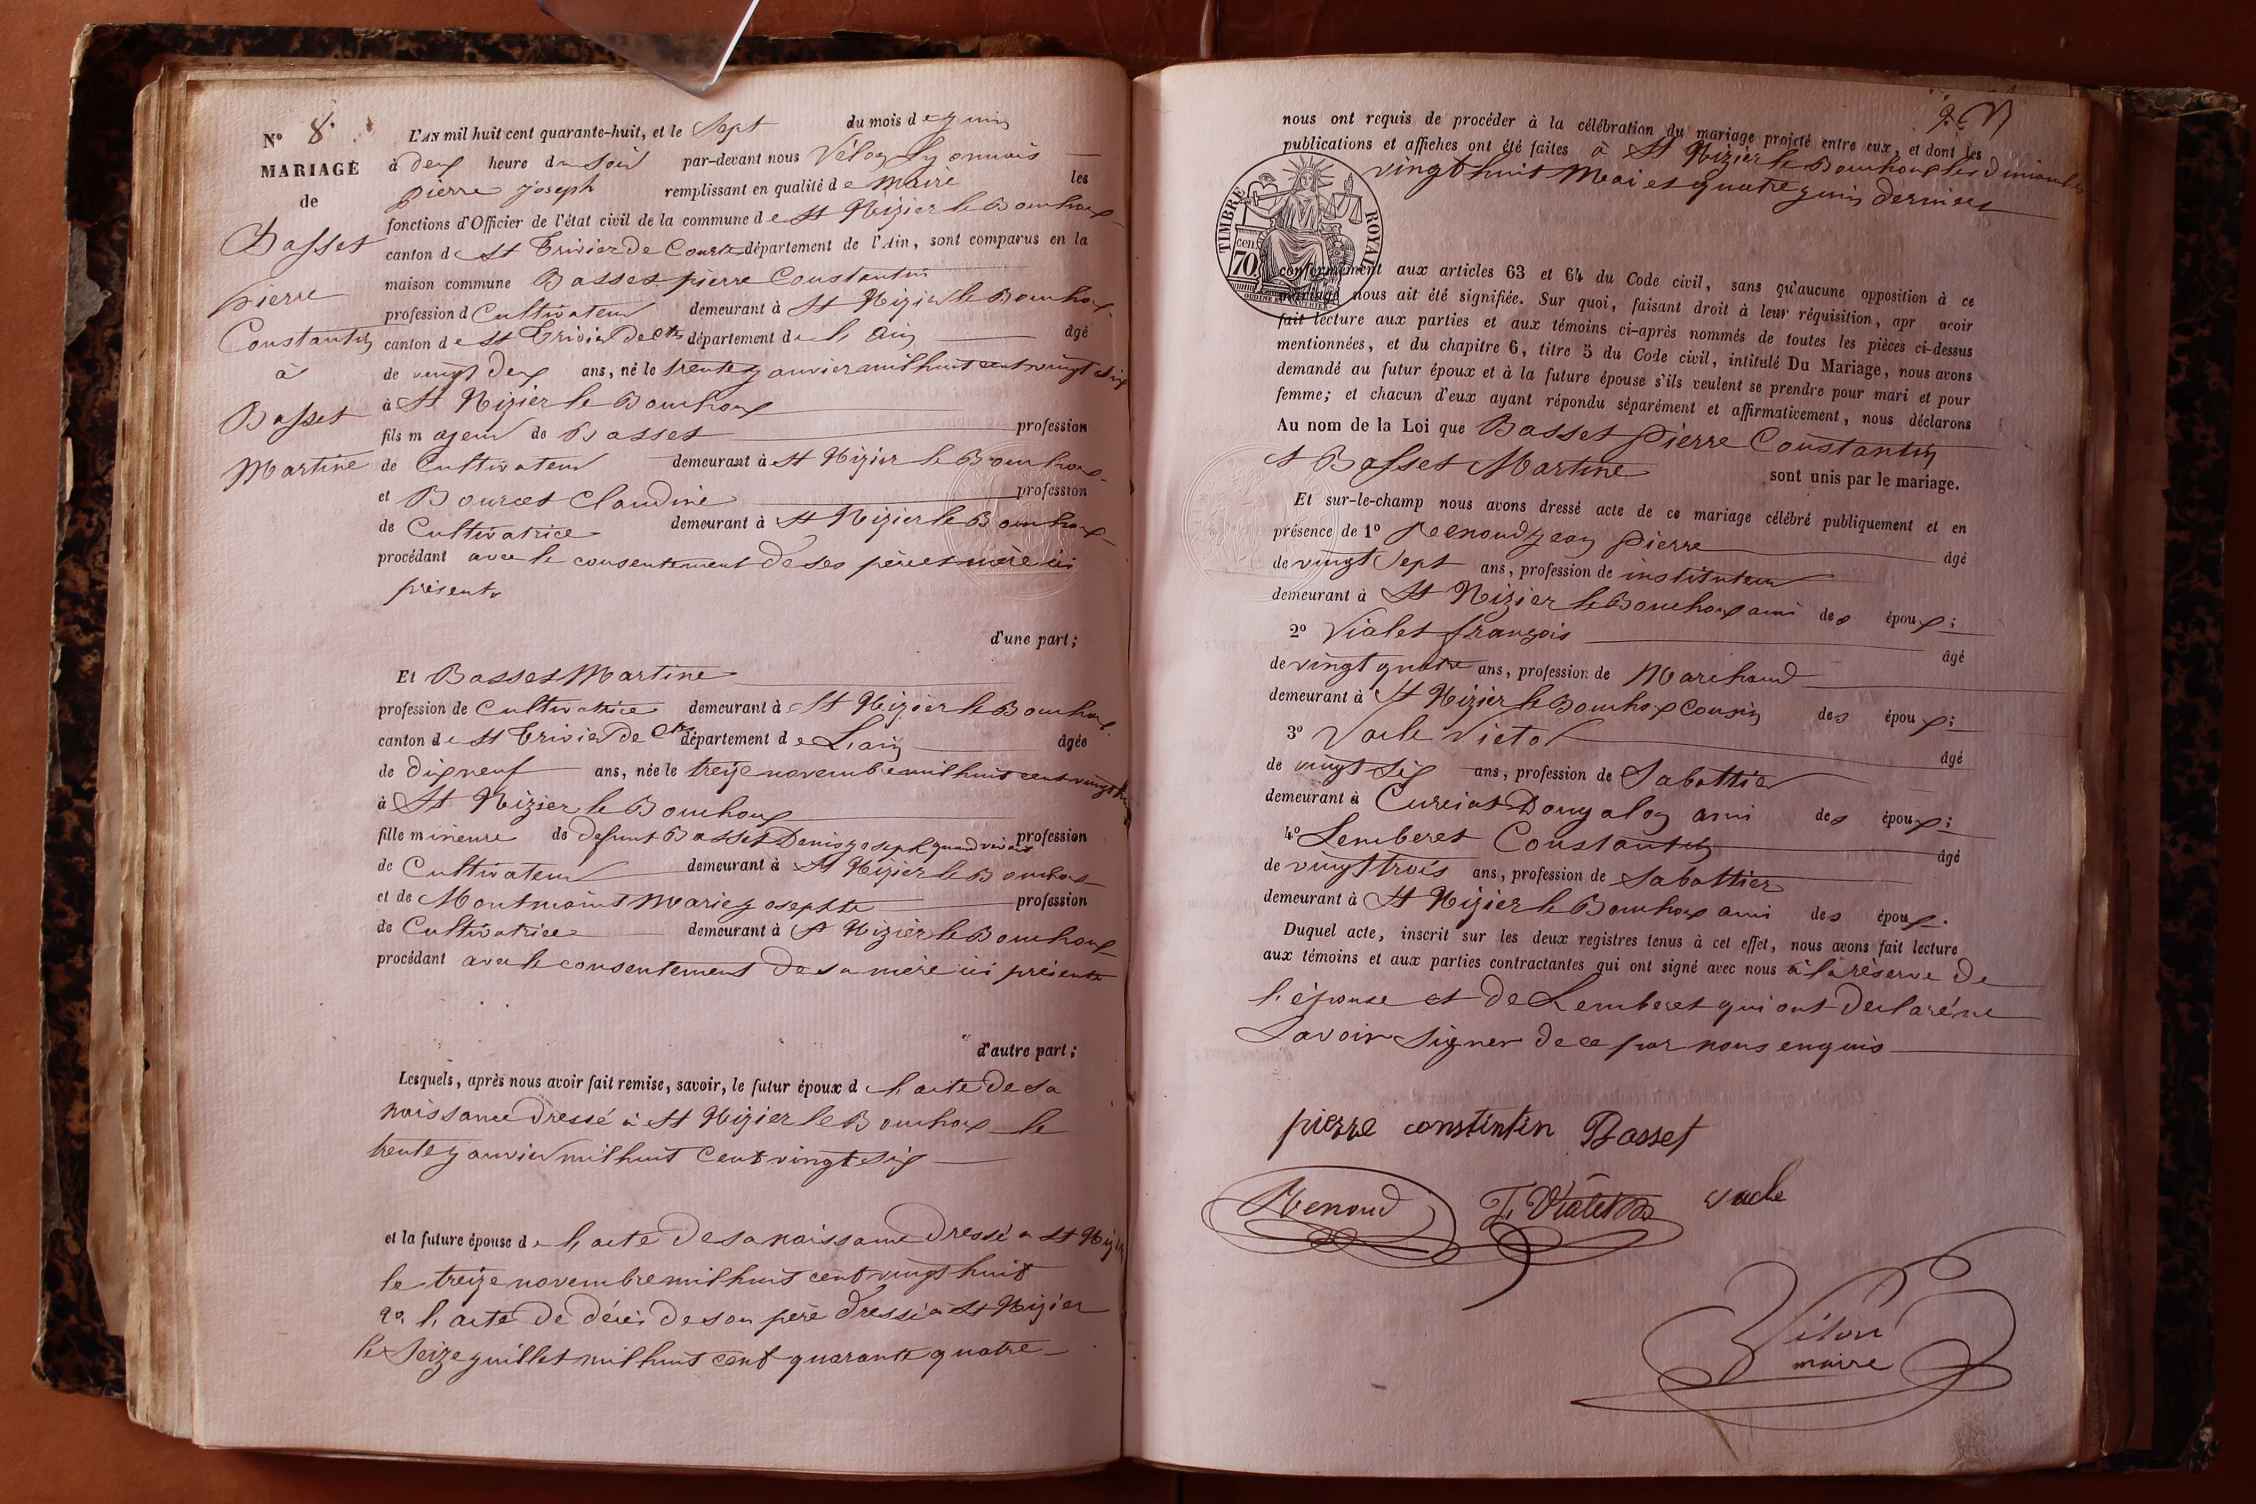 N° 8.
MARIAGE
de
Basset
pierre
Constantin
à
Basset
Martine
L'AN mil huit cent quarante-huit, et le Sept du mois de juin
à deux heure du Soir par-devant nous Vélon lyonnais
pierre joseph remplissant en qualité de maire les
fonctions d'Officier de l'état civil de la commune de St Nizier le Bouchoux
canton de St Trivier De Courte département de l'Ain, sont comparus en la
maison commune Basset pierre Constantin
profession d Cultivateur demeurant à St Nizier le Bouchoux
canton de St Trivier De Ctes département de l'Ain âgé
de vingt deux ans, né le trente janvier mil huit cent vingt six
à St Nizier le Bouchoux
fils majeur de Basset profession
de Cultivateur demeurant à St Nizier le Bouchoux
et Bourcet Claudine profession
de Cultivatrice demeurant à St Nizier le Bouchoux
procédant avec le consentement De ses père et mère ici
présents
d'une part;
Et Basset Martine
profession de Cultivatrice demeurant à St Nizier le Bouchoux
canton de St Trivier De Ctes département de L'ain âgée
de dix neuf ans, née le treize novembre mil huit cent vingt huit
à St Nizier le Bouchoux
fille mineure de defunt Basset Denis joseph quand vivait profession
de Cultivateur demeurant à St Nizier le Bouchoux
et de Montmaint Marie josephte profession
de Cultivatrice demeurant à St Nizier le Bouchoux
procédant avec le consentement De sa mère ici présente
d'autre part;
Lesquels, après nous avoir fait remise, savoir, le futur époux de l'acte De sa
naissance Dressé à St Nizier le Bouchoux le
trente janvier mil huit Cent vingt Six
et la future épouse de l'acte De sa naissance Dressé à St Nizier
le treize novembre mil huit cent vingt huit
2° l'acte De décès De son père Dressé à St Nizier
le Seize juillet mil huit cent quarante quatre
nous ont requis de procéder à la célébration du mariage projeté entre eux, et dont les
publications et affiches ont été faites à St Nizier le Bouchoux les Dimanches
vingt huit Mai et quatre juin Derniers
TIMBRE ROYAL
70 cen.
conformément aux articles 63 et 64 du Code civil, sans qu'aucune opposition à ce
mariage nous ait été signifiée. Sur quoi, faisant droit à leur réquisition, apr avoir
fait lecture aux parties et aux témoins ci-après nommés de toutes les pièces ci-dessus
mentionnées, et du chapitre 6, titre 5 du Code civil, intitulé Du Mariage, nous avons
demandé au futur époux et à la future épouse s'ils veulent se prendre pour mari et pour
femme; et chacun d'eux ayant répondu séparément et affirmativement, nous déclarons
Au nom de la Loi que Basset pierre Constantin
et Basset Martine sont unis par le mariage.
Et sur-le-champ nous avons dressé acte de ce mariage célébré publiquement et en
présence de 1° Renoud jean pierre âgé
de vingt Sept ans, profession de instituteur
demeurant à St Nizier le Bouchoux ami des époux;
2° Vialet françois âgé
de vingt quatre ans, profession de Marchand
demeurant à St Nizier le Bouchoux cousin des époux;
3° Vacle Victor âgé
de vingt Six ans, profession de Sabottier
demeurant à Curciat Dongalon ami des époux;
4° Lemberet Constantin âgé
de vingt trois ans, profession de Sabottier
demeurant à St Nizier le Bouchoux ami des époux.
Duquel acte, inscrit sur les deux registres tenus à cet effet, nous avons fait lecture
aux témoins et aux parties contractantes qui ont signé avec nous à la réserve De
l'épouse et De Lemberet qui ont Declaré ne
Savoir Signer De ce par nous enquis
pierre constintin Basset
Renoud F. Vialet Vacle
Vélon
maire